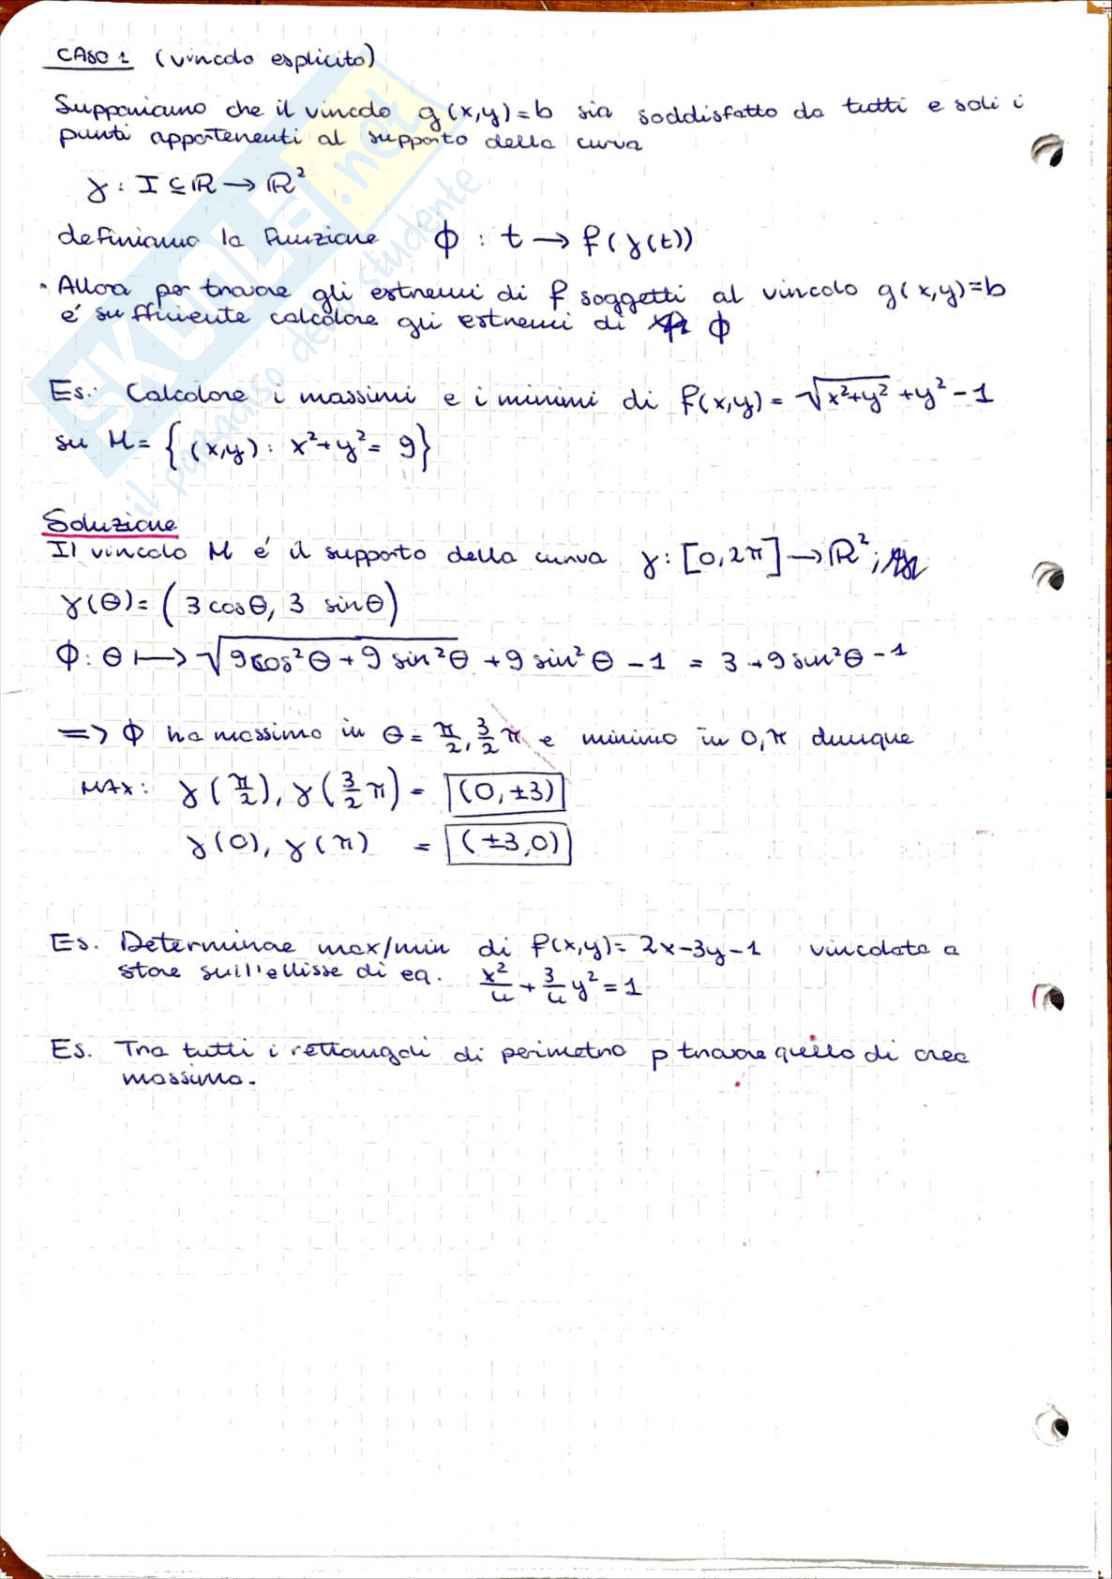 CASO 1 (vincolo esplicito)
Supponiamo che il vincolo g(x,y)=b sia soddisfatto da tutti e soli i
punti appartenenti al supporto della curva
γ : I ⊆ ℝ → ℝ²
definiamo la funzione ϕ : t → f(γ(t))
• Allora per trovare gli estremi di f soggetti al vincolo g(x,y)=b
é sufficiente calcolare gli estremi di ϕ
Es.: Calcolare i massimi e i minimi di f(x,y) = √(x²+y²) + y² - 1
su M = {(x,y) : x²+y² = 9}
Soluzione
Il vincolo M é il supporto della curva γ : [0, 2π] → ℝ² ;
γ(θ) = (3 cosθ, 3 sinθ)
ϕ : θ ↦ √(9cos²θ + 9 sin²θ) + 9 sin²θ - 1 = 3 + 9 sin²θ - 1
=> ϕ ha massimo in θ = π/2, 3/2 π e minimo in 0, π dunque
MAX : γ(π/2), γ(3/2 π) = (0, ±3)
γ(0), γ(π) = (±3, 0)
Es. Determinare max/min di f(x,y) = 2x-3y-1 vincolata a
stare sull'ellisse di eq. x²/4 + 3/4 y² = 1
Es. Tra tutti i rettangoli di perimetro p trovare quello di area
massima.
SKUOLA.net
il paradiso dello studente